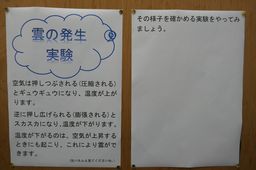 雲の発生
実験
空気は押しつぶされる(圧縮される)
とギュウギュウになり、温度が上が
ります。
逆に押し広げられる(膨張される)と
スカスカになり、温度が下がります。
温度が下がるのは、空気が上昇する
ときにも起こり、これにより雲がで
きます。
その様子を確かめる実験をやってみ
ましょう。